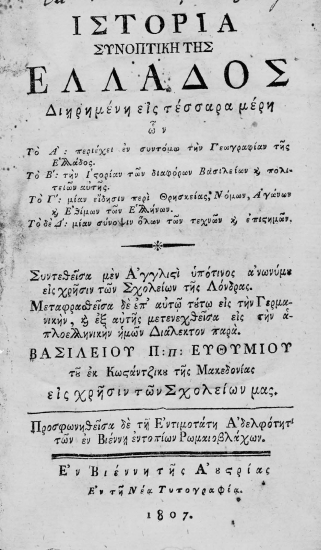 ΙΣΤΟΡΙΑ
ΣΥΝΟΠΤΙΚΗ ΤΗΣ
ΕΛΛΑΔΟΣ
Διῃρημένη εἰς τέσσαρα μέρη
ὧν
Τὸ Α΄: περιέχει ἐν συντόμῳ τὴν Γεωγραφίαν τῆς
Ἑλλάδος.
Τὸ Β΄: τὴν Ἱϛορίαν τῶν διαφόρων Βασιλείων ϗ πολι-
τειῶν αὐτῆς.
Τὸ Γ΄: μίαν εἴδησιν περὶ Θρησκείας, Νόμων, Ἀγώνων
ϗ Ἐθίμων τῶν Ἑλλήνων.
Τὸ δὲ Δ: μίαν σύνοψιν ὅλων τῶν τεχνῶν ϗ ἐπιϛημῶν.
Συντεθεῖσα μὲν Ἀγγλιϛὶ ὑπό τινος ἀνωνύμȣ
εἰς χρῆσιν τῶν Σχολείων τῆς Λόνδρας.
Μεταφρασθεῖσα δὲ ἐπ' αὐτῷ τȣ́τῳ εἰς τὴν Γερμα-
νικήν, ϗ ἐξ αὐτῆς μετενεχθεῖσα εἰς τὴν ἁ-
πλοελληνικὴν ἡμῶν Διάλεκτον παρὰ
ΒΑΣΙΛΕΙΟΥ Π:π: ΕΥΘΥΜΙΟΥ
τȣ͂ ἐκ Κωϛάντζικȣ τῆς Μακεδονίας
εἰς χρῆσιν τῶν Σχολείων μας.
Προσφωνηθεῖσα δὲ τῇ Ἐντιμοτάτῃ Ἀδελφότητι
τῶν ἐν Βιέννῃ ἐντοπίων Ῥωμαιοβλάχων.
Ἐν Βιέννῃ τῆς Ἀυϛρίας
Ἐν τῇ Νέᾳ Τυπογραφίᾳ.
1807.